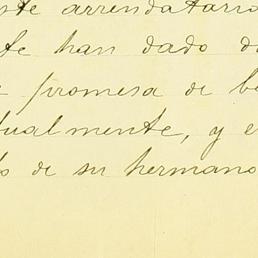 ste arrendatario
te han dado d
promesa de b
tualmente, y e
s de su hermano